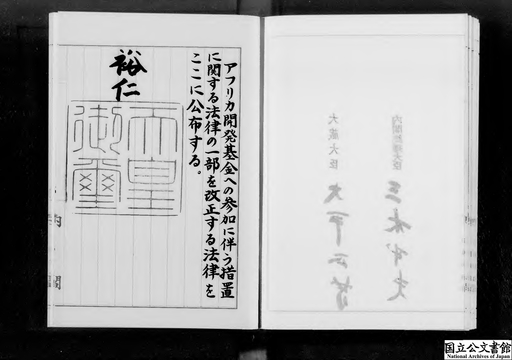 アフリカ開発基金への参加に伴う措置
に関する法律の一部を改正する法律を
ここに公布する。
裕仁
天皇
御璽
内閣
内閣総理大臣
三木武夫
大蔵大臣
大平正芳
国立公文書館
National Archives of Japan